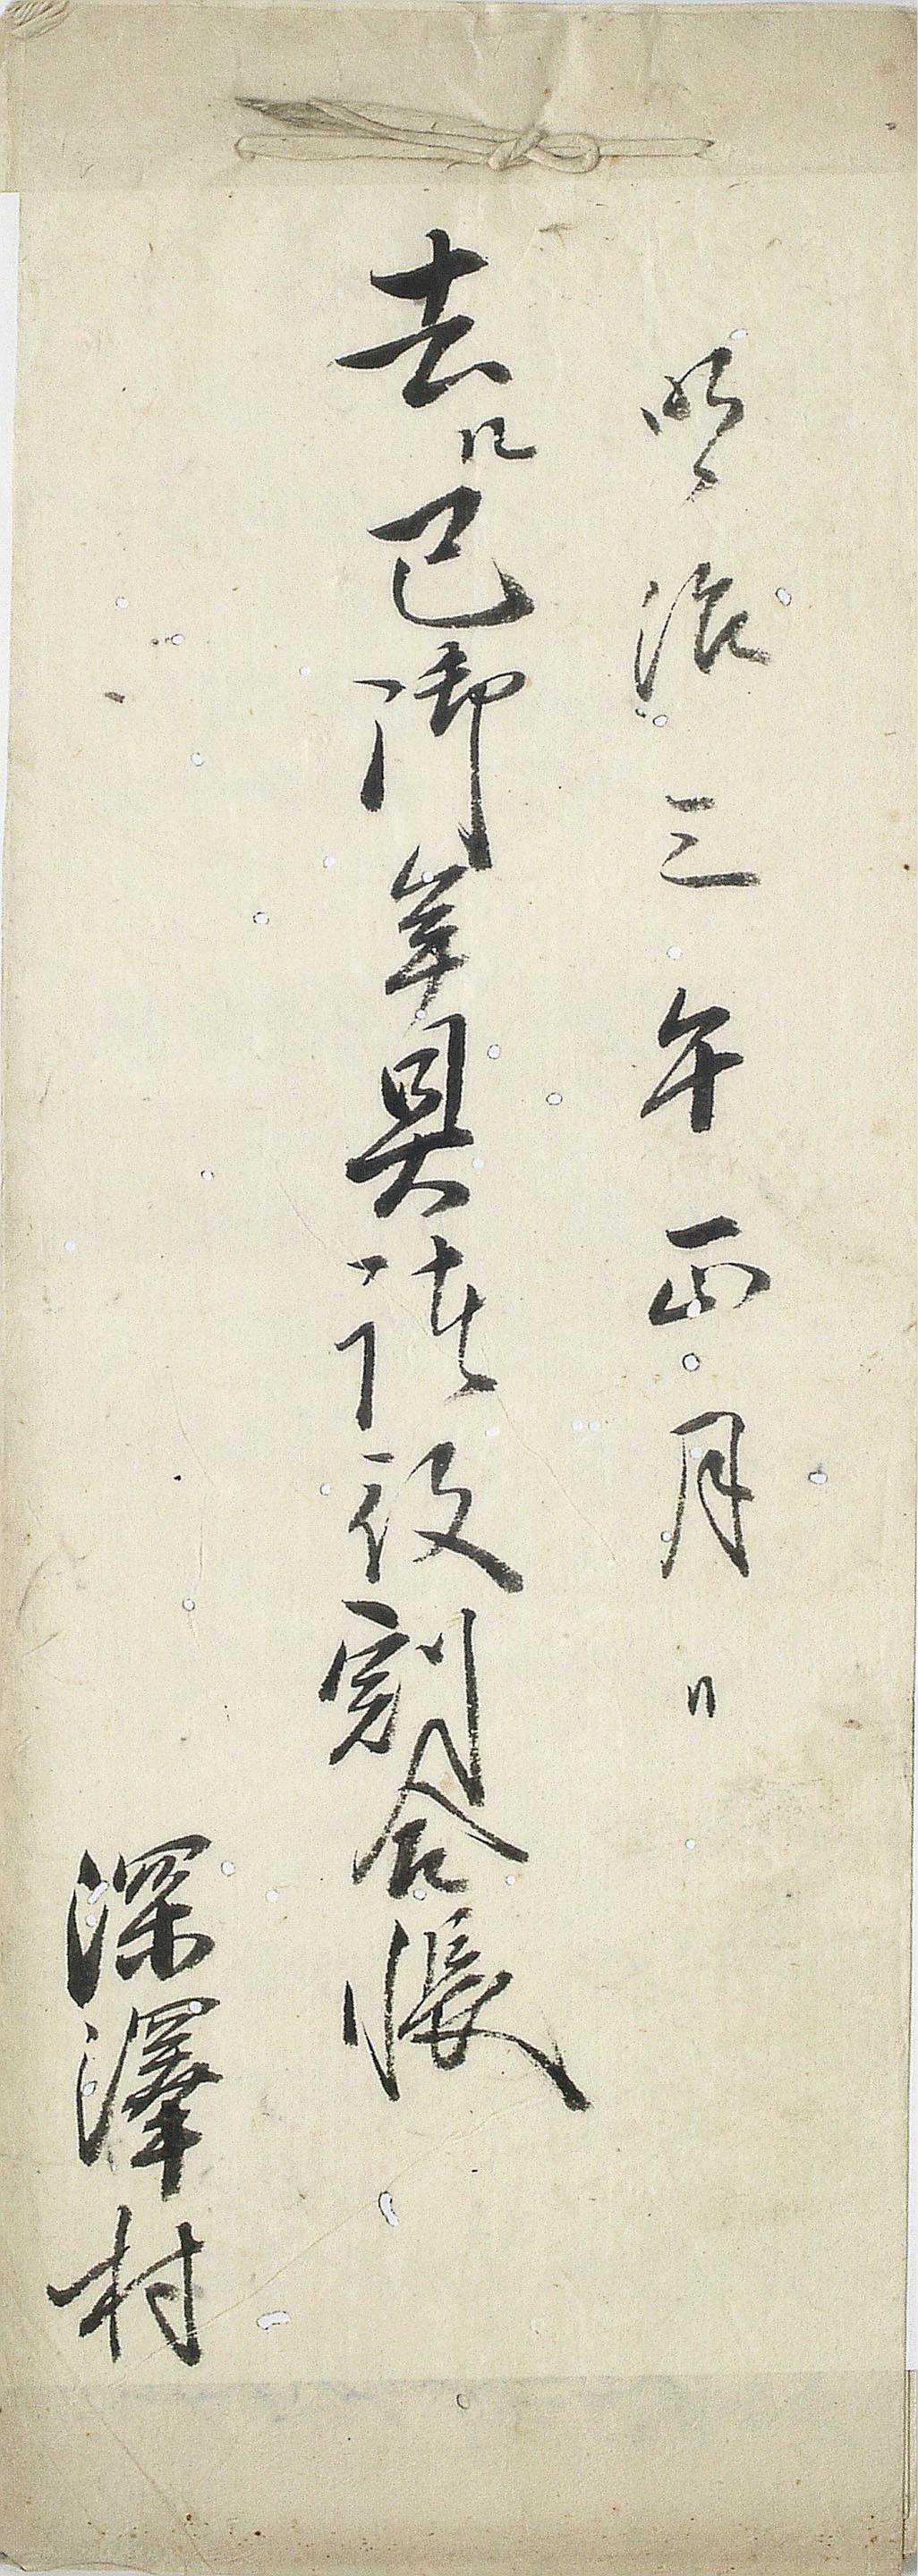 明治三午正月日
去ル巳御年貢諸役割合帳
深澤村